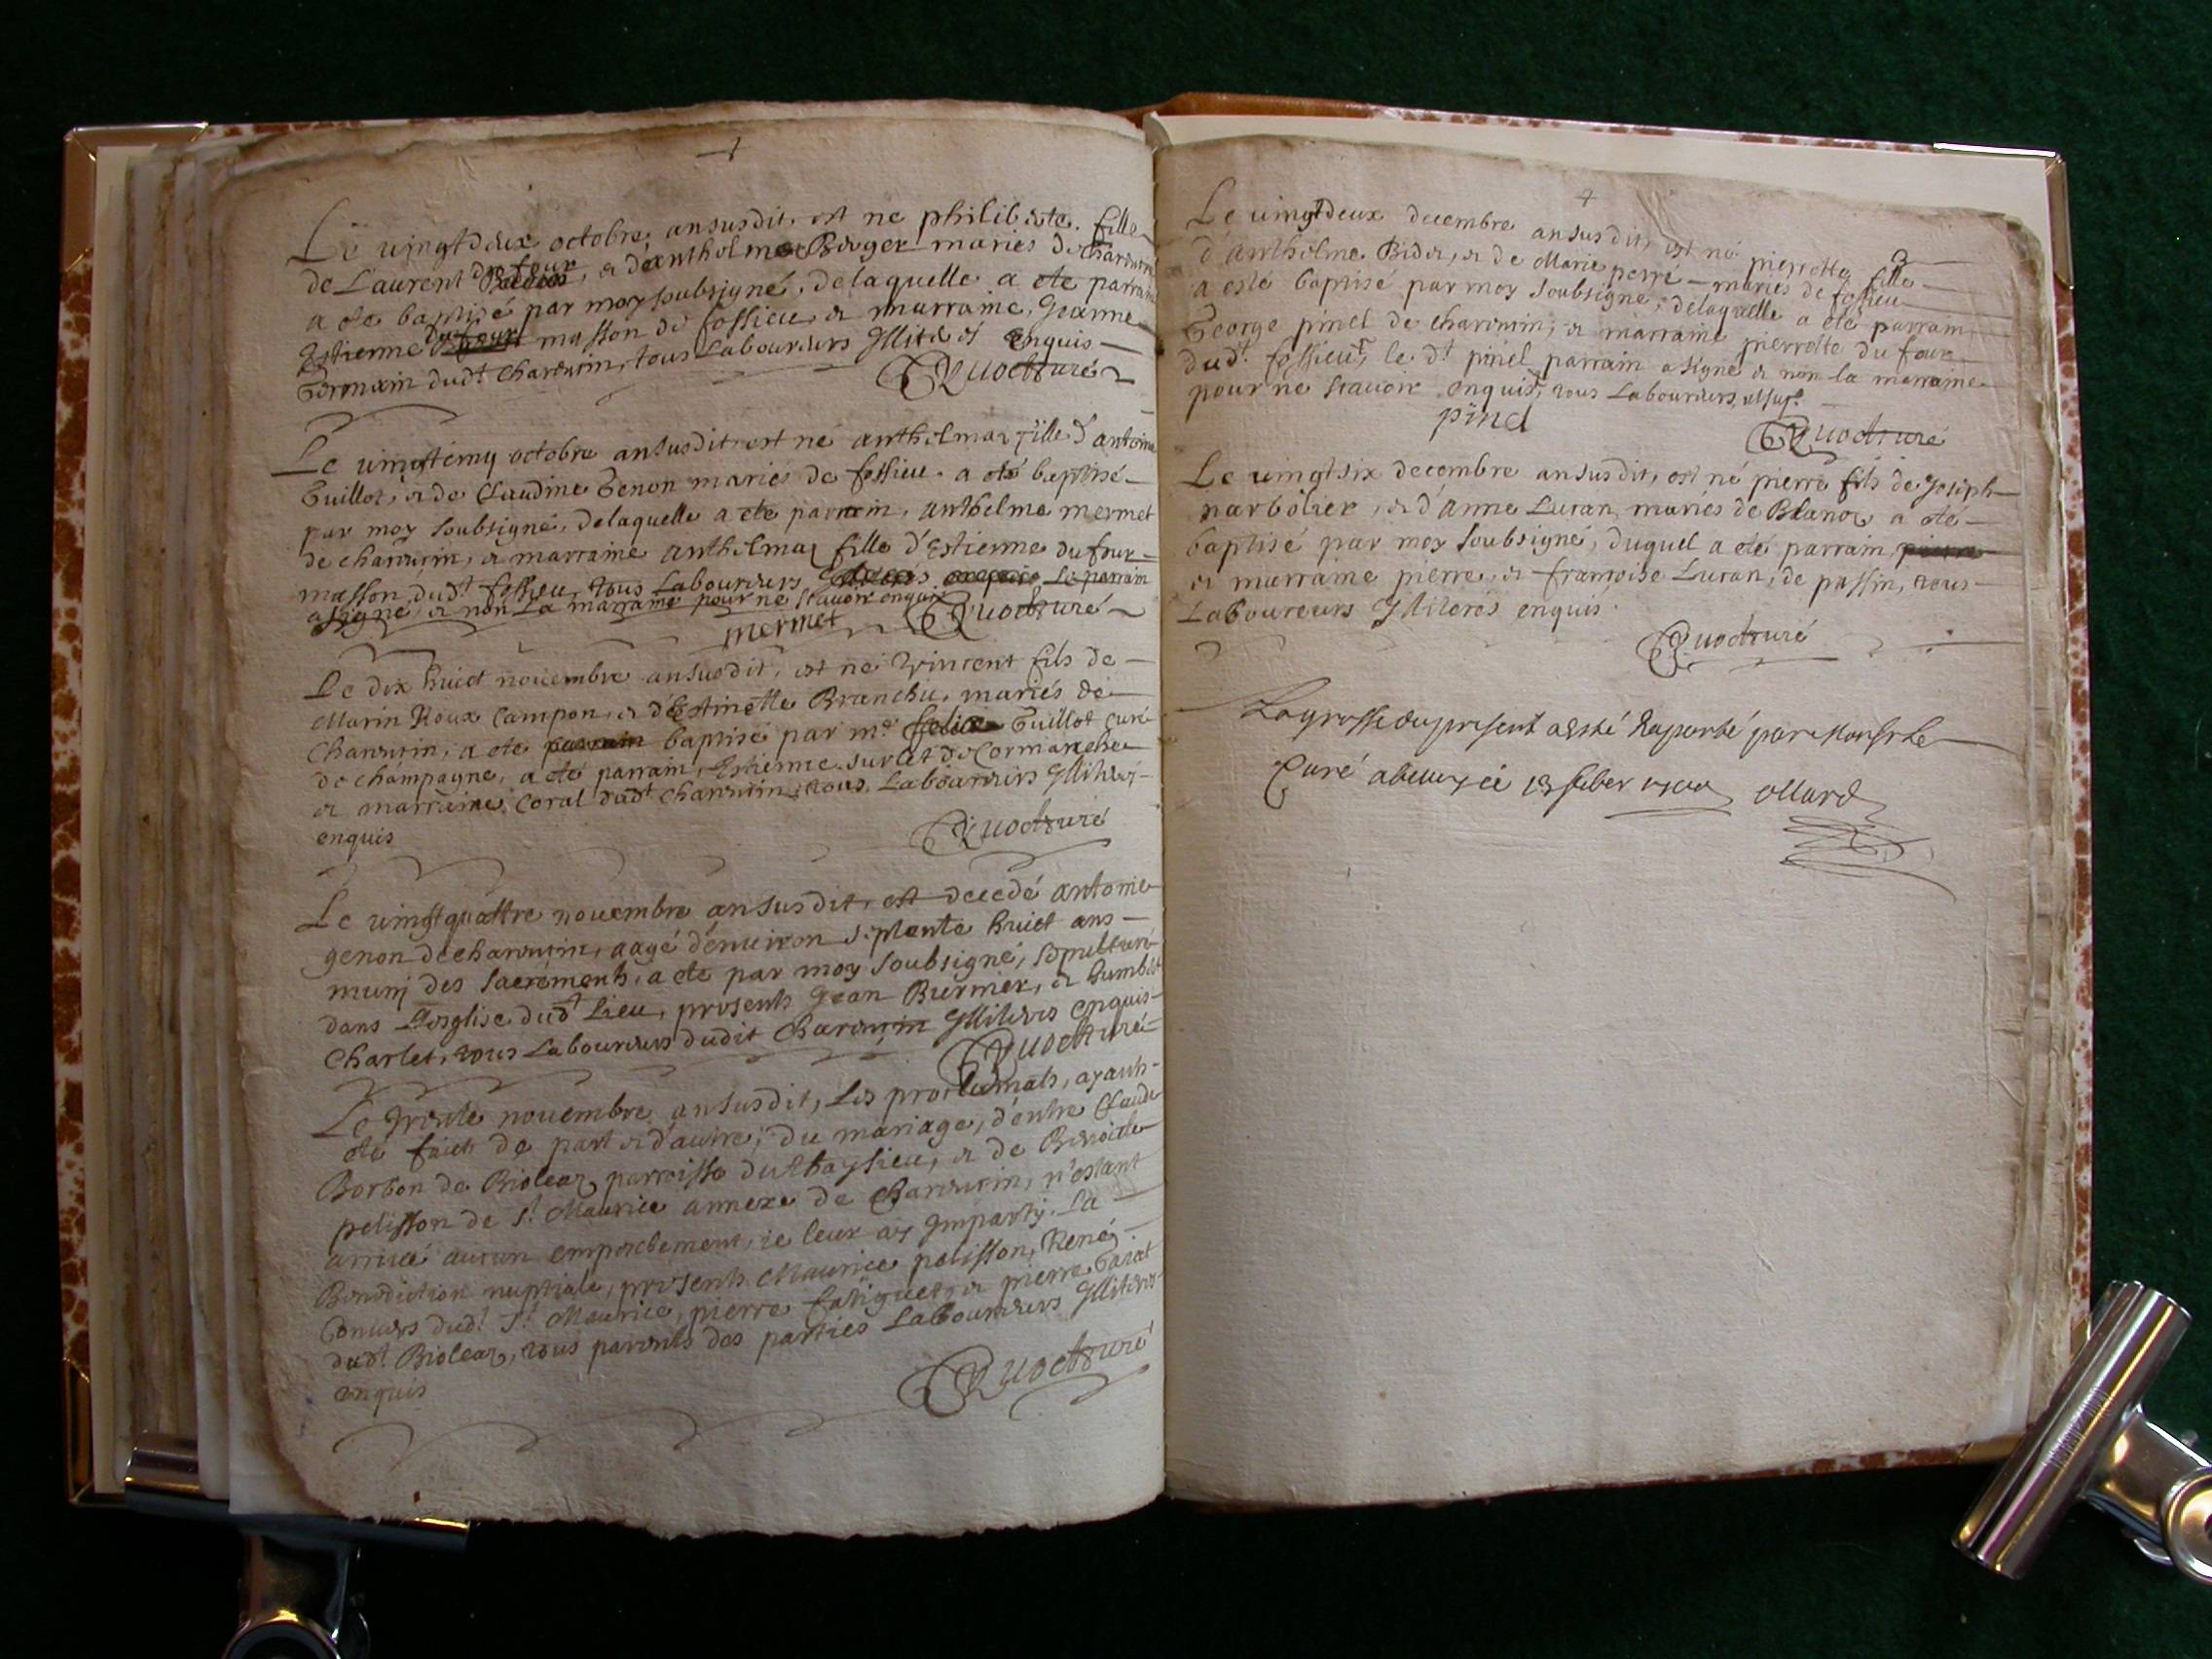 Le vingtdeux octobre ansusdit est né philiberte fille
de Laurent dufour, et de anthelme Berger mariés de charvurin
a ete baptisé par moy soubsigné, delaquelle a ete parrain
Estienne dufour masson de fossieu et marraine, Jeanne
Germain dudt charvurin, tous Laboureurs Illiterés enquis
Quocturé
Le vingt octobre ansusdit est né anthelmaz fille d'antoine
Guillot, et de Claudine Genon mariés de fossieu a eté baptisé
par moy soubsigné, delaquelle a ete parrain, anthelme mermet
de charvurin, et marraine anthelmaz fille d'Estienne dufour
masson dudt fossieu, tous Laboureurs Le parrain
a signé et non La marraine pour ne scavoir enquis
mermet Quocturé
Le dix huict novembre ansusdit, est né vincent fils de
Marin Roux Campon, et d'Estinette Branchu, mariés de
Charvurin, a ete baptisé par mre felix Guillot curé
de champagne, a eté parrain, Estienne surlet de Cormaranche
et marraine, Coral dudt charvurin, tous Laboureurs Illiterés
enquis
Quocturé
Le vingtquattre novembre ansusdit, est decedé antoine
genon de charvurin, aagé d'environ septante huict ans
muni des sacréments, a ete par moy soubsigné, sepulturé
dans L'esglise dudt Lieu, presents Jean Burnier, et humbert
Charlet, tous Laboureurs dudit Charvurin Illiterés enquis
Quocturé
Le trente novembre ansusdit, Les proclamats, ayants
ete faicts de part et d'autre, du mariage, d'entre Claude
Borbon de Bioleaz parroisse duthaysieu, et de Benoite
pelisson de St Maurice annexe de Charvurin, n'estant
arrivé aucun emperchement, ie leur ay Imparty La
Benediction nuptiale, presents Maurice pelisson, René
Convers dudt St Maurice, pierre fatiguet, et pierre
dudt Bioleaz, tous parents des parties Laboureurs Illiterés
enquis
Quocturé
3
Le vingtdeux decembre ansusdit, est né pierrotte fille
d'anthelme Bider, et de Marie perré mariés de fossieu
a esté baptisé par moy soubsigné, delaquelle a eté parrain
George pinel de charvurin, et marraine pierrotte du four
dudt fossieu, le dt pinel parrain a signé et non la marraine
pour ne scavoir enquis, tous Laboureurs
pinel
Quocturé
Le vingtsix decembre ansusdit, est né pierre fils de Joseph
narbolier, et d'Anne Luran mariés de Blanoz a eté
baptisé par moy soubsigné, duquel a eté parrain
et marraine pierre et françoise Luran, de passin, tous
Laboureurs Illiterés enquis
Quocturé
La grosse du present a esté Raporté par Monsr Le
Curé